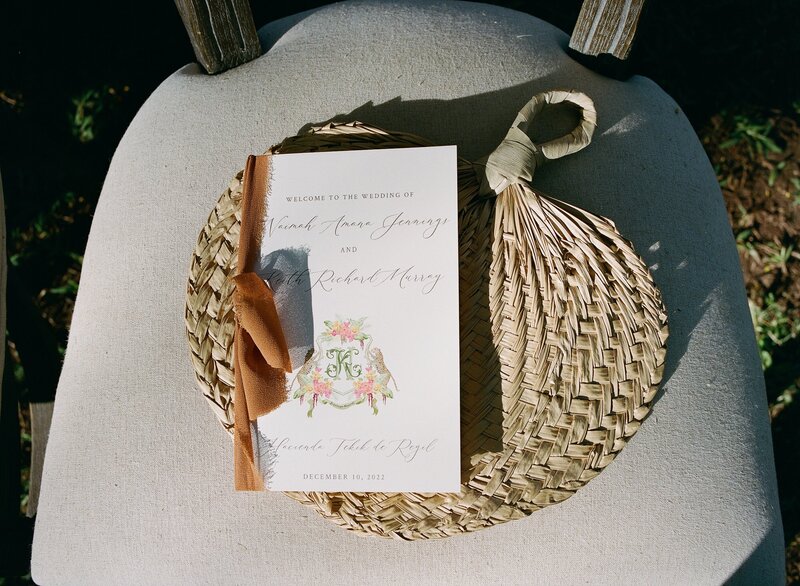 WELCOME TO THE WEDDING OF
Naimah Amana Jennings
AND
Richard Murray
K
Hacienda Tekik de Regil
DECEMBER 10, 2022